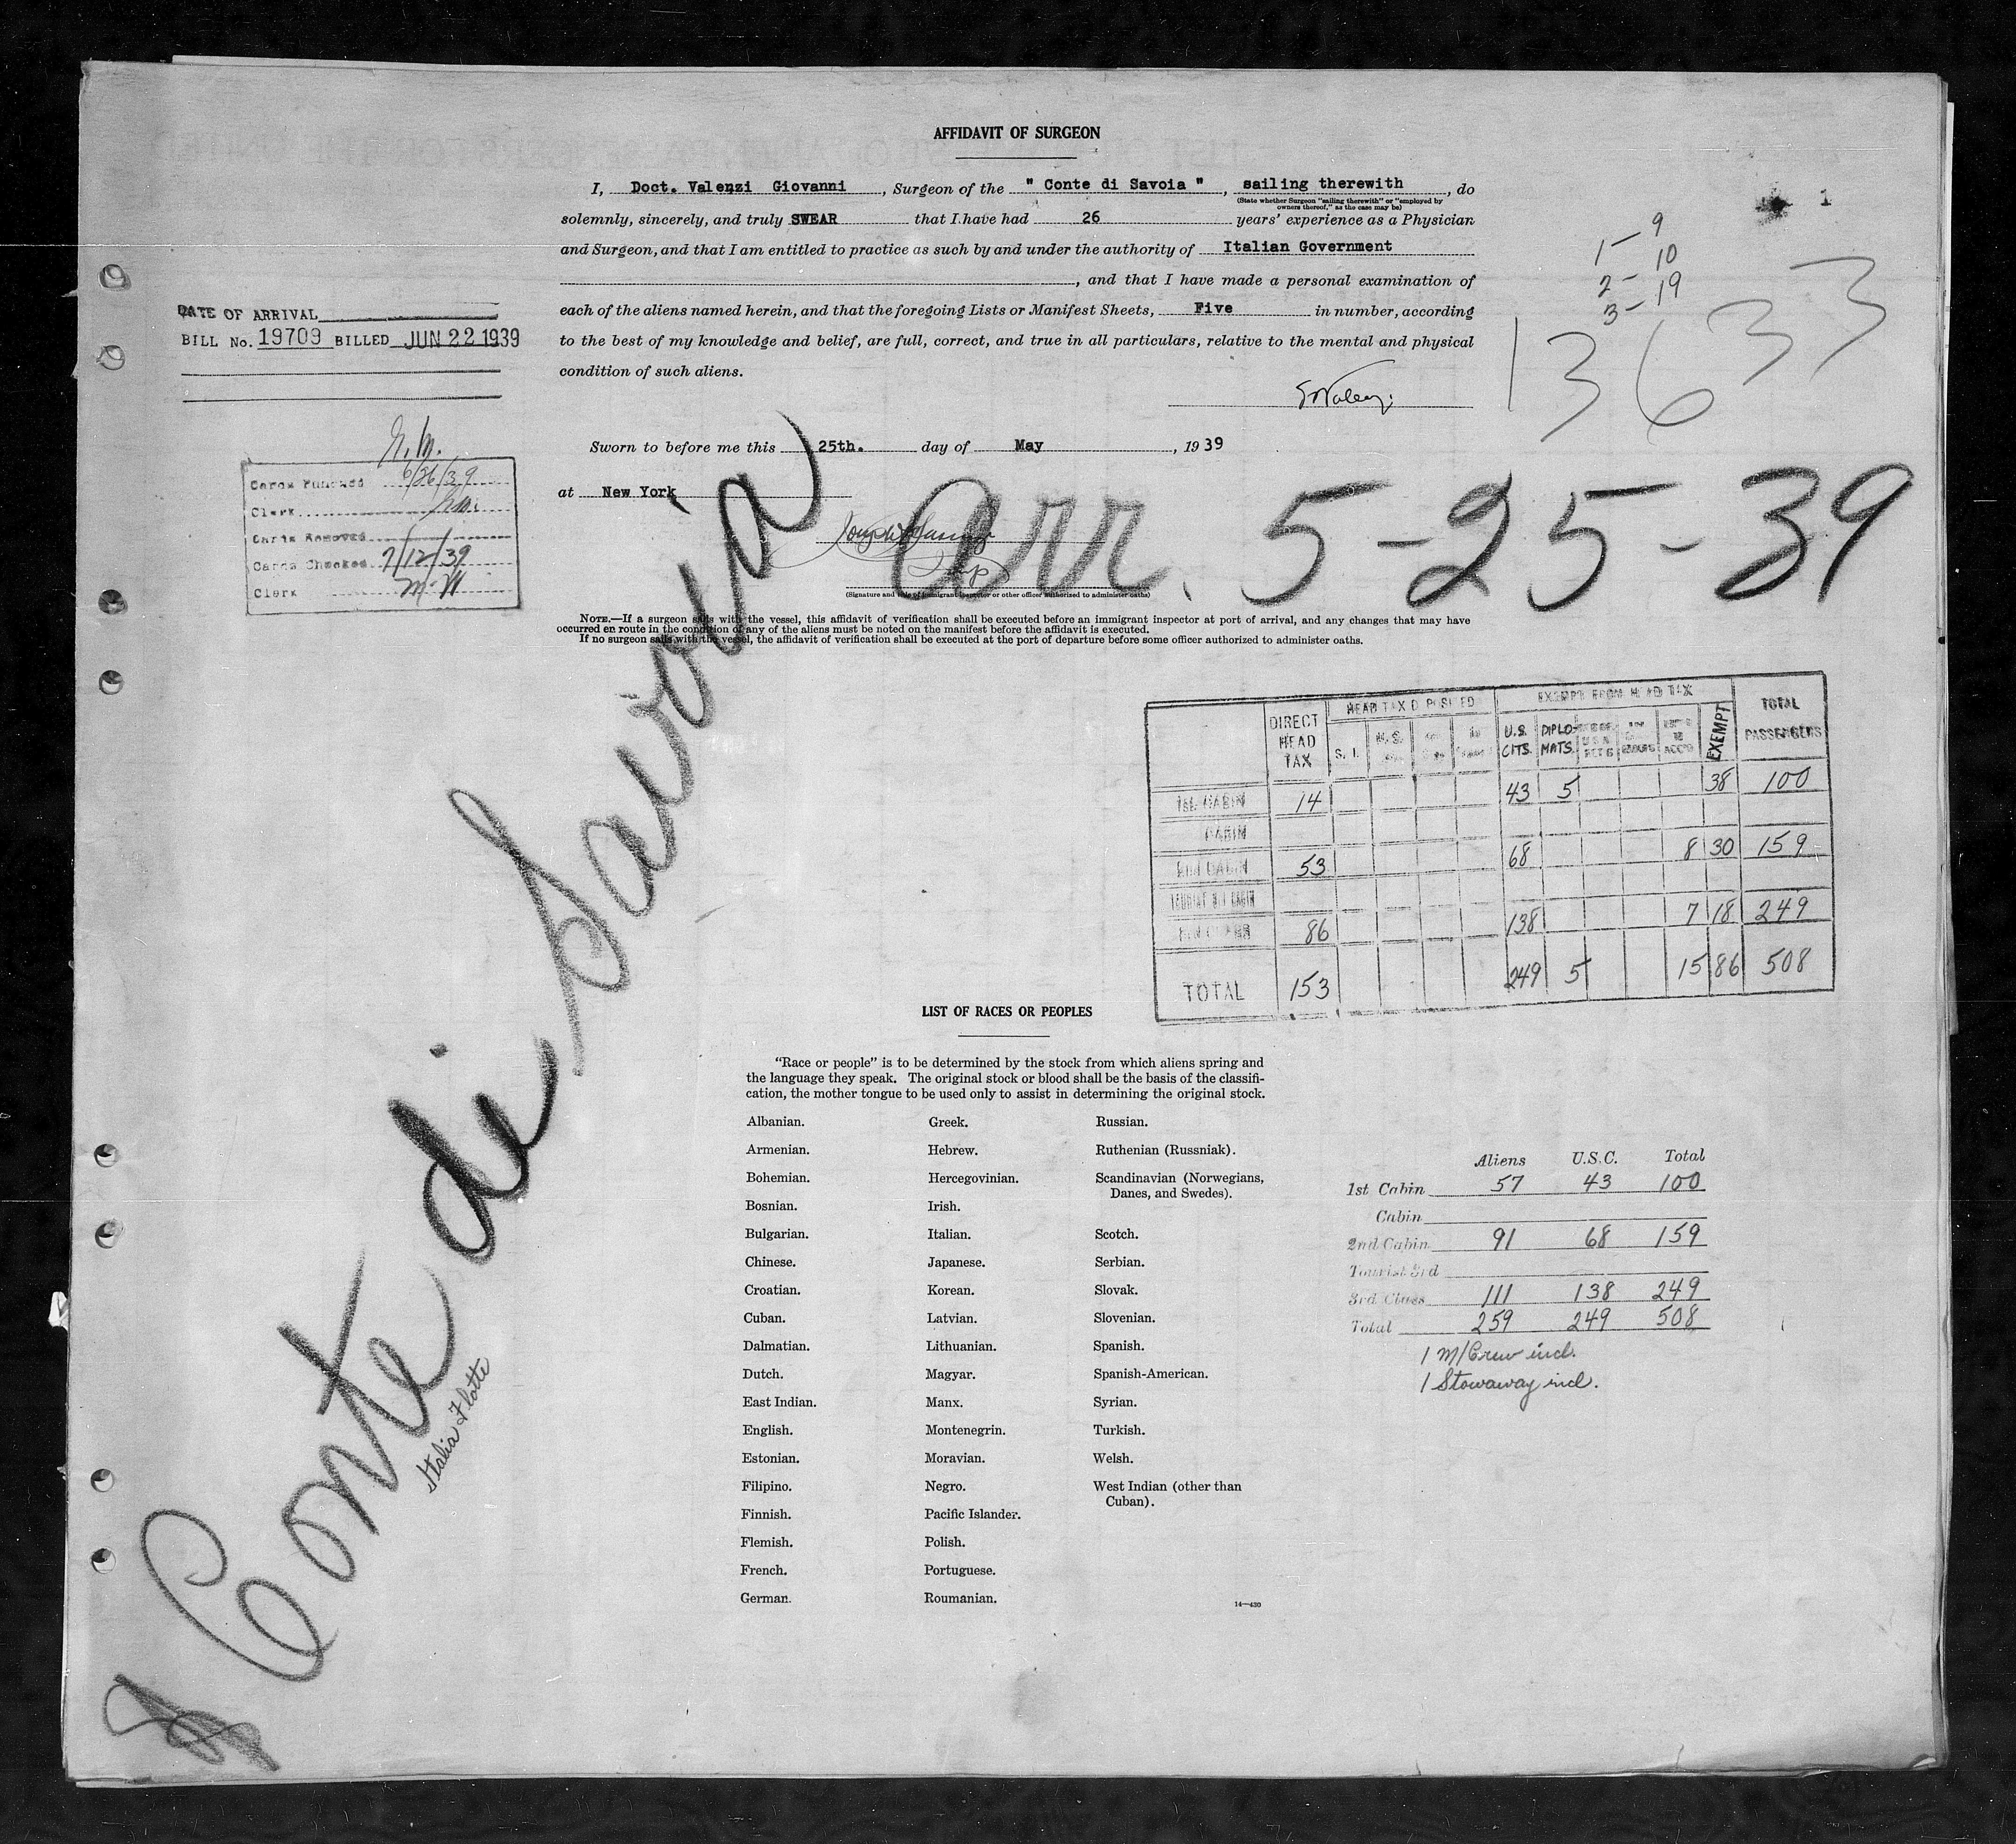 AFFIDAVIT OF SURGEON
I, Doct. Valenzi Giovanni, Surgeon of the " Conte di Savoia ", sailing therewith, do
(State whether Surgeon "sailing therewith" or "employed by
owners thereof," as the case may be)
solemnly, sincerely, and truly SWEAR that I have had 26 years' experience as a Physician
and Surgeon, and that I am entitled to practice as such by and under the authority of Italian Government
, and that I have made a personal examination of
each of the aliens named herein, and that the foregoing Lists or Manifest Sheets, Five in number, according
to the best of my knowledge and belief, are full, correct, and true in all particulars, relative to the mental and physical
condition of such aliens.
Sworn to before me this 25th. day of May, 1939
at New York
(Signature and title of immigrant inspector or other officer authorized to administer oaths)
NOTE.—If a surgeon sails with the vessel, this affidavit of verification shall be executed before an immigrant inspector at port of arrival, and any changes that may have
occurred en route in the condition of any of the aliens must be noted on the manifest before the affidavit is executed.
If no surgeon sails with the vessel, the affidavit of verification shall be executed at the port of departure before some officer authorized to administer oaths.
1
1 - 9
2 - 10
3 - 19
13633
DATE OF ARRIVAL
BILL No. 19709 BILLED JUN 22 1939
Cards Punched 6/26/39
Clerk
Cards Removed
Cards Checked 7/12/39
Clerk
arr. 5-25-39
Conte di Savoia
Italia Flotte
DIRECT HEAD TAX HEAD TAX DEPOSITED EXEMPT FROM HEAD TAX TOTAL PASSENGERS
S. I. U.S. CITS. DIPLOMATS. EXEMPT
1st. CABIN 14 43 5 38 100
CABIN
2nd CABIN 53 68 8 30 159
TOURIST 3rd CABIN
86 138 7 18 249
TOTAL 153 249 5 15 86 508
LIST OF RACES OR PEOPLES
"Race or people" is to be determined by the stock from which aliens spring and
the language they speak. The original stock or blood shall be the basis of the classifi-
cation, the mother tongue to be used only to assist in determining the original stock.
Albanian.
Armenian.
Bohemian.
Bosnian.
Bulgarian.
Chinese.
Croatian.
Cuban.
Dalmatian.
Dutch.
East Indian.
English.
Estonian.
Filipino.
Finnish.
Flemish.
French.
German.
Greek.
Hebrew.
Hercegovinian.
Irish.
Italian.
Japanese.
Korean.
Latvian.
Lithuanian.
Magyar.
Manx.
Montenegrin.
Moravian.
Negro.
Pacific Islander.
Polish.
Portuguese.
Roumanian.
Russian.
Ruthenian (Russniak).
Scandinavian (Norwegians,
Danes, and Swedes).
Scotch.
Serbian.
Slovak.
Slovenian.
Spanish.
Spanish-American.
Syrian.
Turkish.
Welsh.
West Indian (other than
Cuban).
14—430
Aliens U.S.C. Total
1st Cabin 57 43 100
Cabin
2nd Cabin 91 68 159
Tourist 3rd
3rd Class 111 138 249
Total 259 249 508
1 M/Crew incl.
1 Stowaway incl.